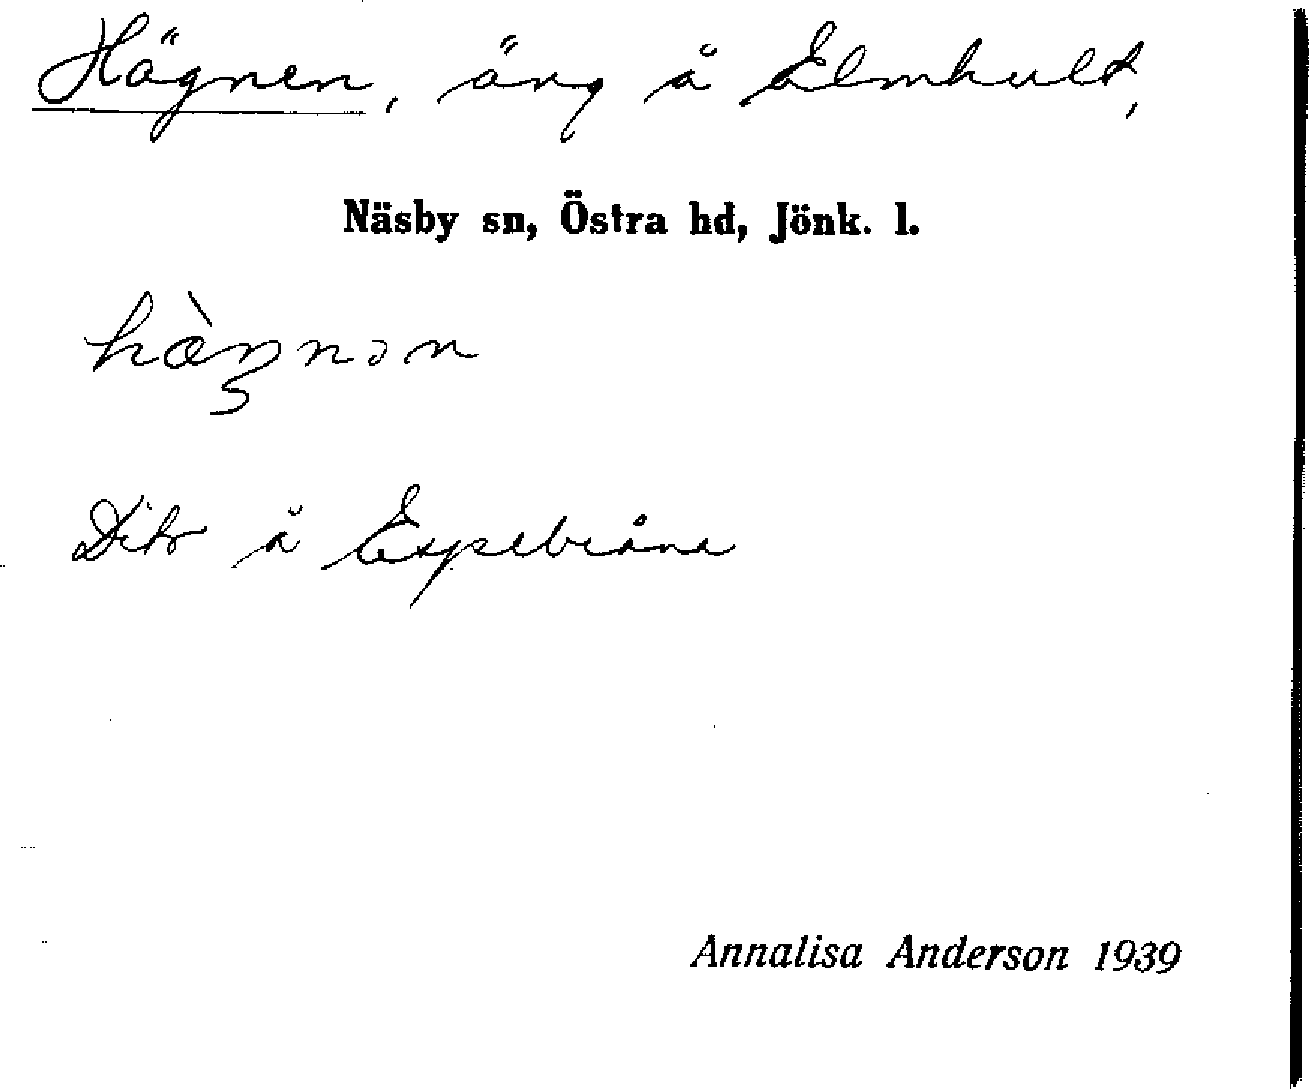 Hägnen, äng å Elmhult,
Näsby sn, Östra hd, Jönk. l.
hæ̀ŋnən
Dito å Espebråna
Annalisa Anderson 1939